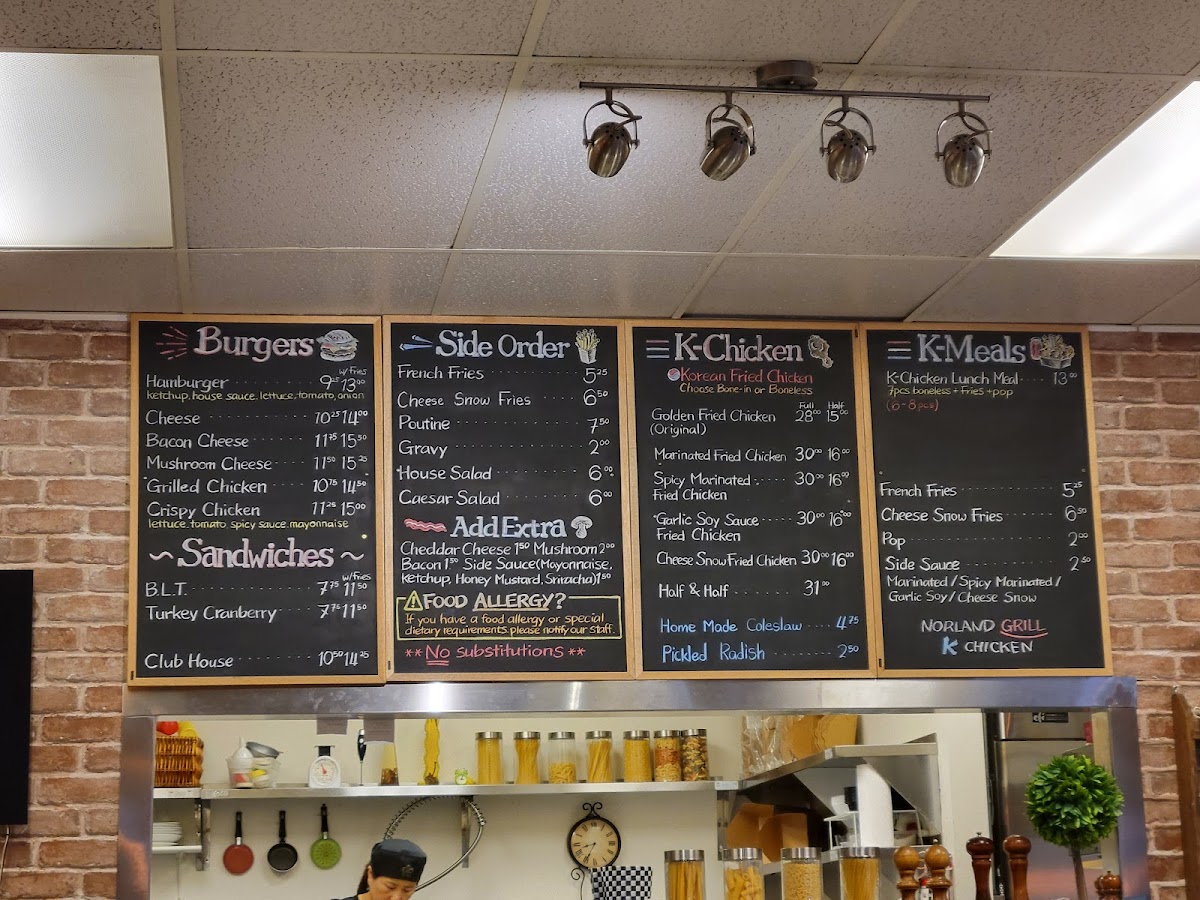 Burgers
w/ Fries
Hamburger 9.25 13.00
ketchup, house sauce, lettuce, tomato, onion
Cheese 10.25 14.00
Bacon Cheese 11.75 15.50
Mushroom Cheese 11.50 15.25
Grilled Chicken 10.75 14.50
Crispy Chicken 11.25 15.00
lettuce, tomato, spicy sauce, mayonnaise
~ Sandwiches ~
w/ fries
B.L.T. 7.75 11.50
Turkey Cranberry 7.75 11.50
Club House 10.50 14.25
Side Order
French Fries 5.25
Cheese Snow Fries 6.50
Poutine 7.50
Gravy 2.00
House Salad 6.00
Caesar Salad 6.00
Add Extra
Cheddar Cheese 1.50 Mushroom 2.00
Bacon 1.50 Side Sauce (Mayonnaise,
ketchup, Honey Mustard, Sriracha) 1.50
FOOD ALLERGY?
If you have a food allergy or special
dietary requirements please notify our staff.
** No substitutions **
K-Chicken
Korean Fried Chicken
Choose Bone-in or Boneless
Full Half
Golden Fried Chicken 28.00 15.00
(Original)
Marinated Fried Chicken 30.00 16.00
Spicy Marinated 30.00 16.00
Fried Chicken
Garlic Soy Sauce 30.00 16.00
Fried Chicken
Cheese Snow Fried Chicken 30.00 16.00
Half & Half 31.00
Home Made Coleslaw 4.75
Pickled Radish 2.50
K-Meals
K-Chicken Lunch Meal 13.00
7pcs boneless + fries + pop
(6-8pcs)
French Fries 5.25
Cheese Snow Fries 6.50
Pop 2.00
Side Sauce 2.50
Marinated / Spicy Marinated /
Garlic Soy / Cheese Snow
NORLAND GRILL
K CHICKEN